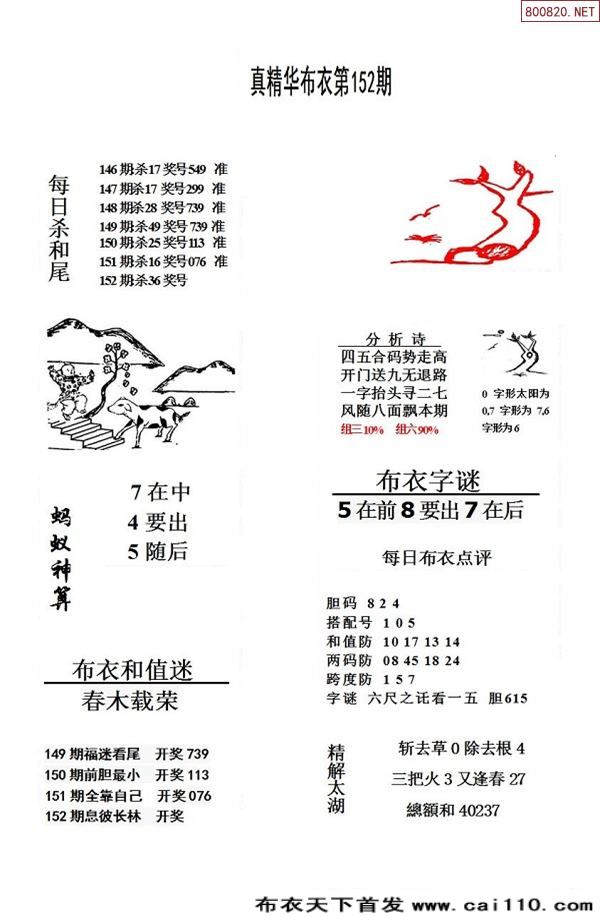 800820.NET
真精华布衣第152期
每日杀和尾
146 期:杀17 奖号549 准
147 期:杀17 奖号299 准
148 期:杀28 奖号739 准
149 期:杀49 奖号739 准
150 期:杀25 奖号113 准
151 期:杀16 奖号076 准
152 期:杀36 奖号
分析诗
四五合码势走高
开门送九无退路
一字抬头寻二七
风随八面飘本期
组三10% 组六90%
0 字形太阳为
0,7 字形为 7,6
字形为6
蚂蚁神算
7 在中
4 要出
5 随后
布衣字谜
5在前8要出7在后
每日布衣点评
胆码 8 2 4
搭配号 1 0 5
和值防 10 17 13 14
两码防 08 45 18 24
跨度防 1 5 7
字谜 六尺之讬看一五 胆615
布衣和值迷
春木载荣
149 期福迷看尾 开奖 739
150 期前胆最小 开奖 113
151 期全靠自己 开奖 076
152 期息彼长林 开奖
精解太湖
斩去草 0 除去根 4
三把火 3 又逢春 27
總額和 40237
布衣天下首发 www.cai110.com